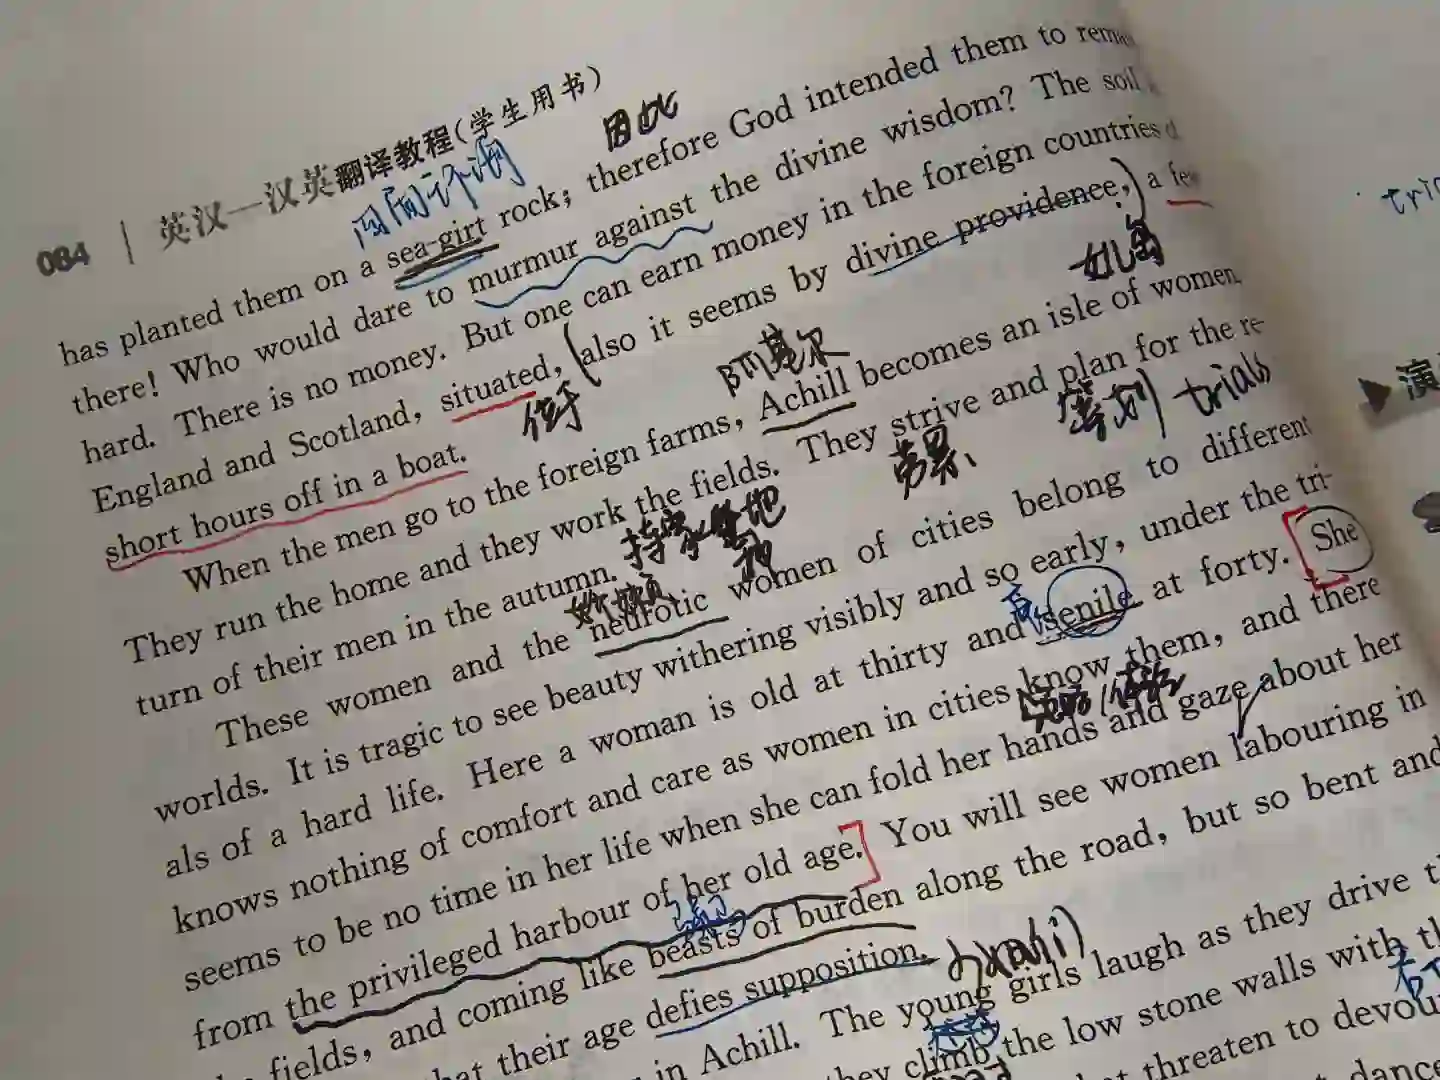 084 | 英汉—汉英翻译教程(学生用书)
因此
has planted them on a sea-girt rock; therefore God intended them to
there! Who would dare to murmur against the divine wisdom? The soil
hard. There is no money. But one can earn money in the foreign countries
England and Scotland, situated, (also it seems by divine providence,) a few
short hours off in a boat.
位于
阿基尔
女儿岛
When the men go to the foreign farms, Achill becomes an isle of women.
They run the home and they work the fields. They strive and plan for the re-
turn of their men in the autumn.
trials
These women and the neurotic women of cities belong to different
worlds. It is tragic to see beauty withering visibly and so early, under the tri-
als of a hard life. Here a woman is old at thirty and senile at forty. She
knows nothing of comfort and care as women in cities know them, and there
seems to be no time in her life when she can fold her hands and gaze about her
from the privileged harbour of her old age. You will see women labouring in
fields, and coming like beasts of burden along the road, but so bent and
their age defies supposition.
in Achill. The young girls laugh as they drive
they climb the low stone walls with
threaten to devour